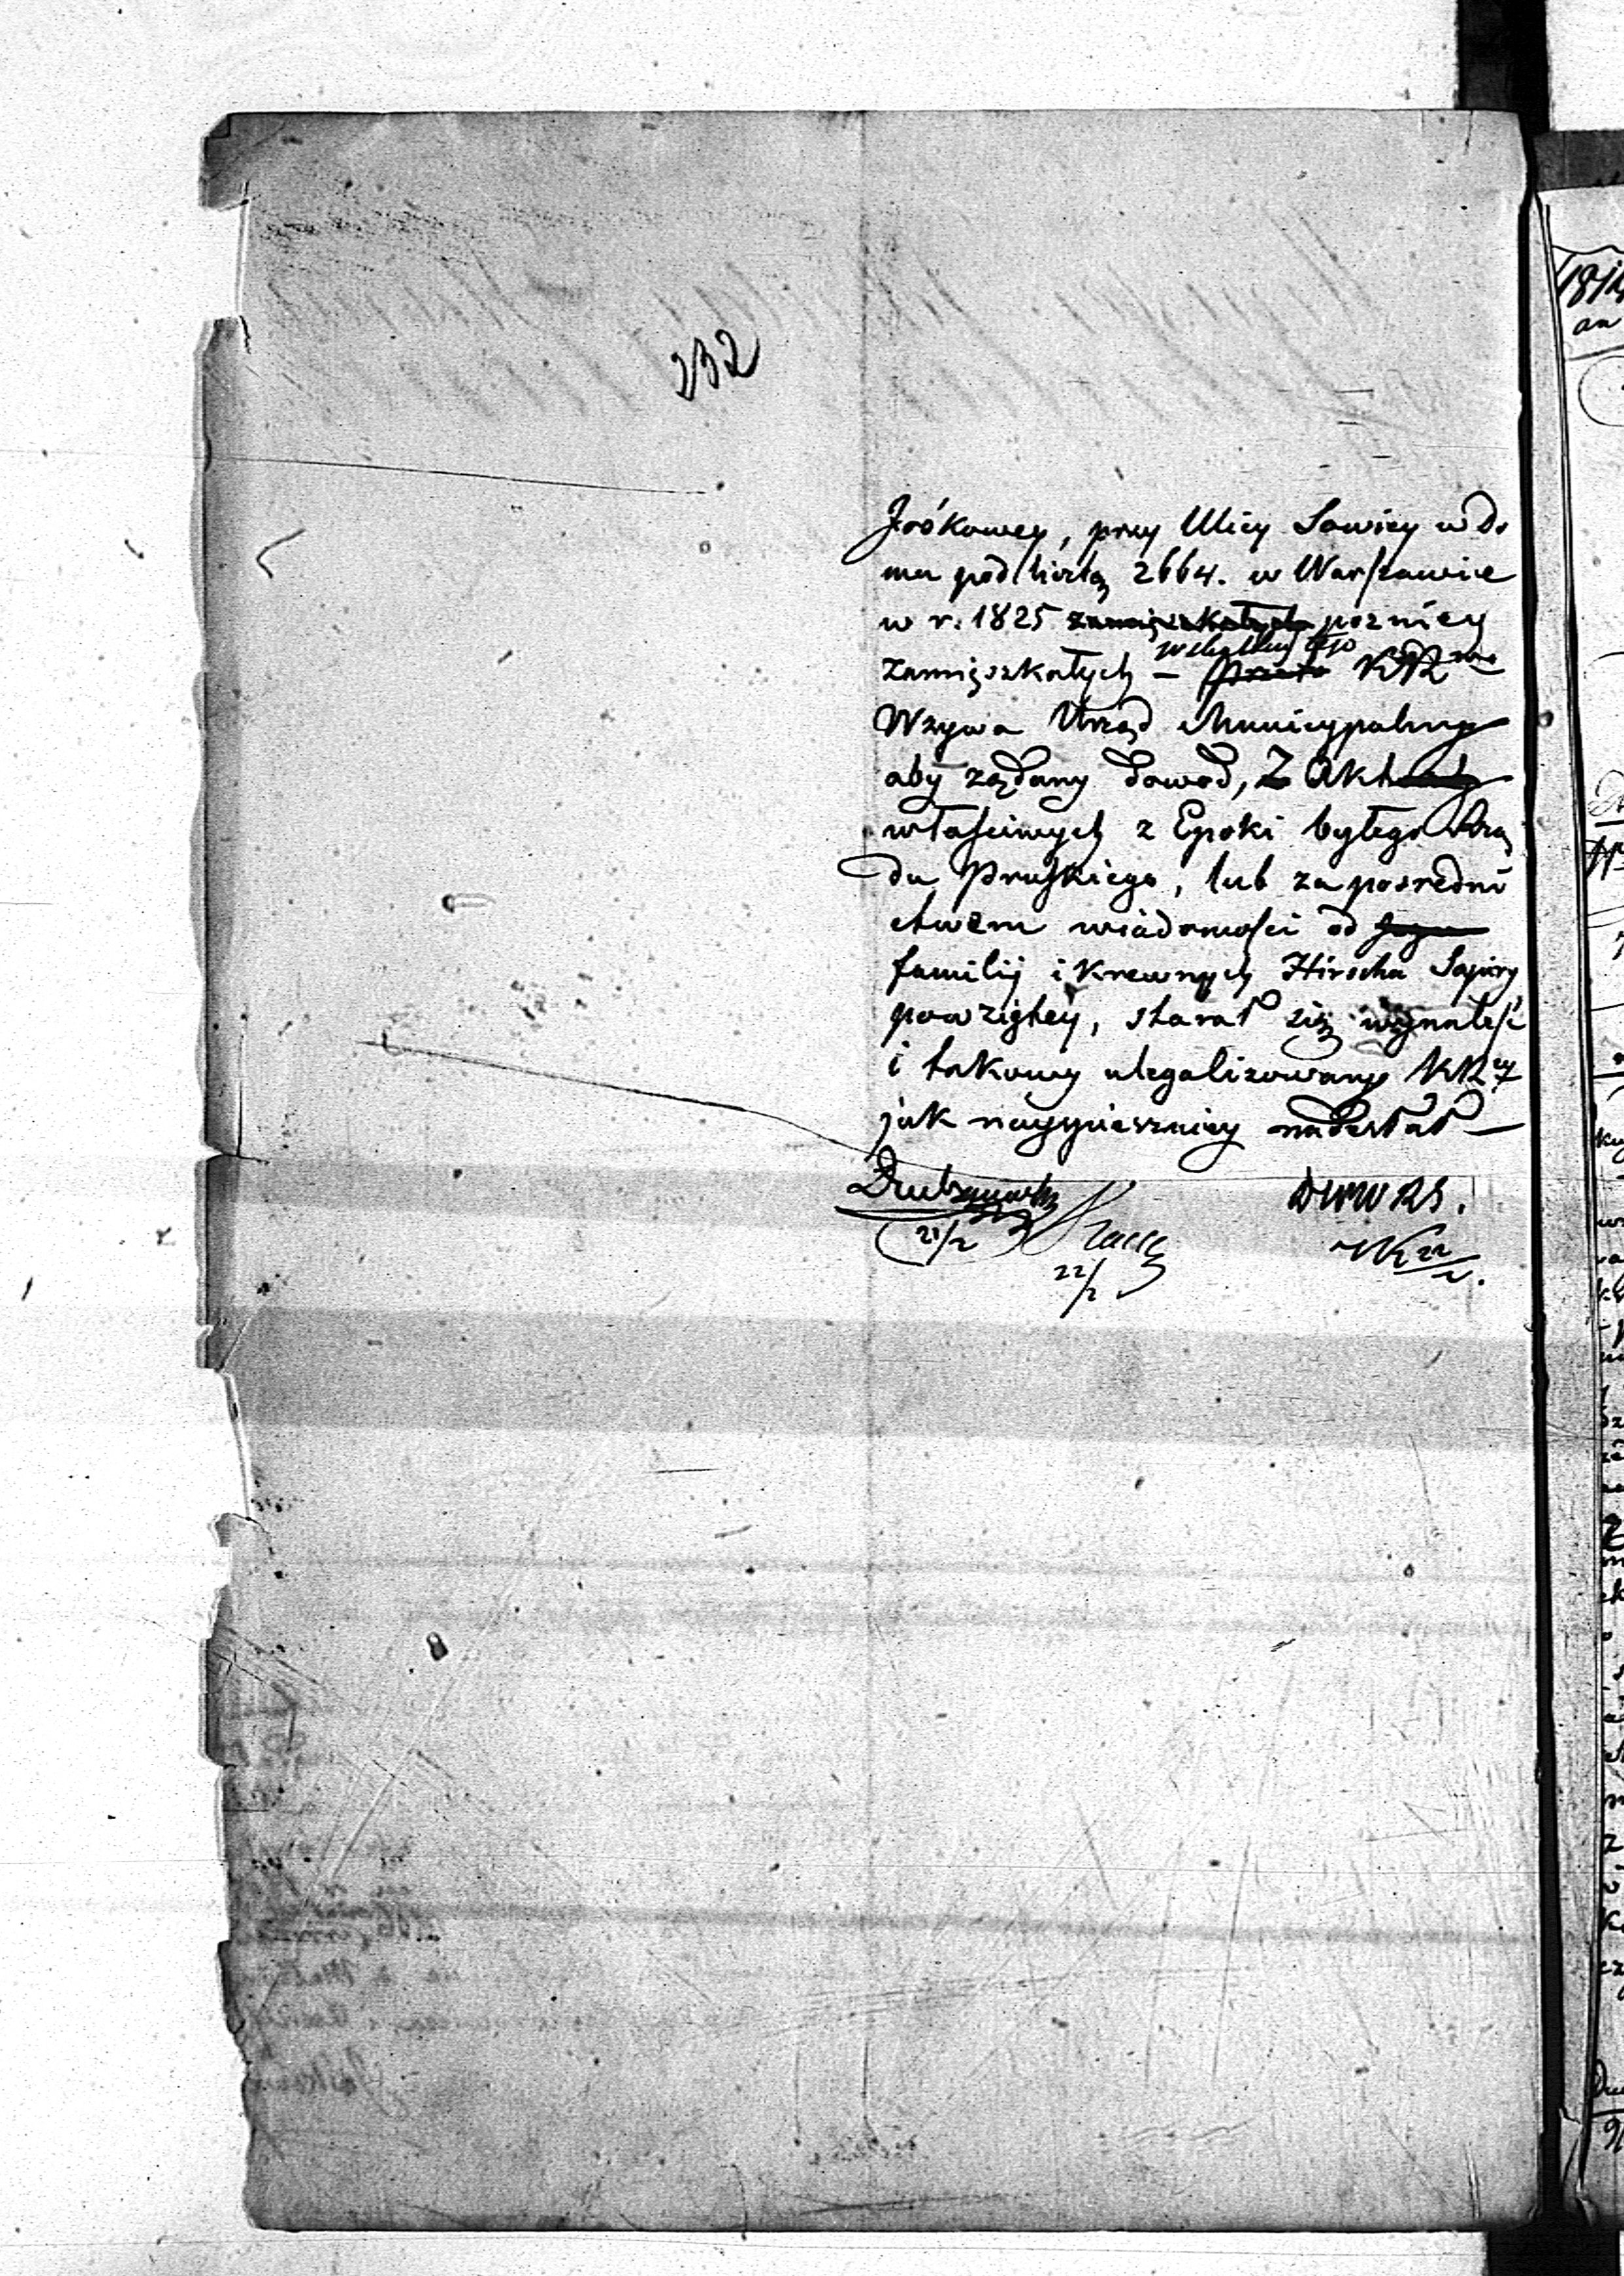 232
Jośkowey, przy Ulicy Sowiey w Do
mu pod liczbą 2664. w Warszawie
w r. 1825 zamięszkałych pozniey
w skutku tego
zamięszkałych – przeto KR
Wzywa Urząd Municypalny
aby żądany dowod, z Akt
właściwych z Epoki byłego Rzą
du Pruskiego, lub za posredni
ctwem wiádomości od
familij i krewnych Hirscha Sapiry
powziętey, starał się wynaleść
i takowy ulegalizowany KR
jak nayspieszniey nadesłał –
21/2
22/2